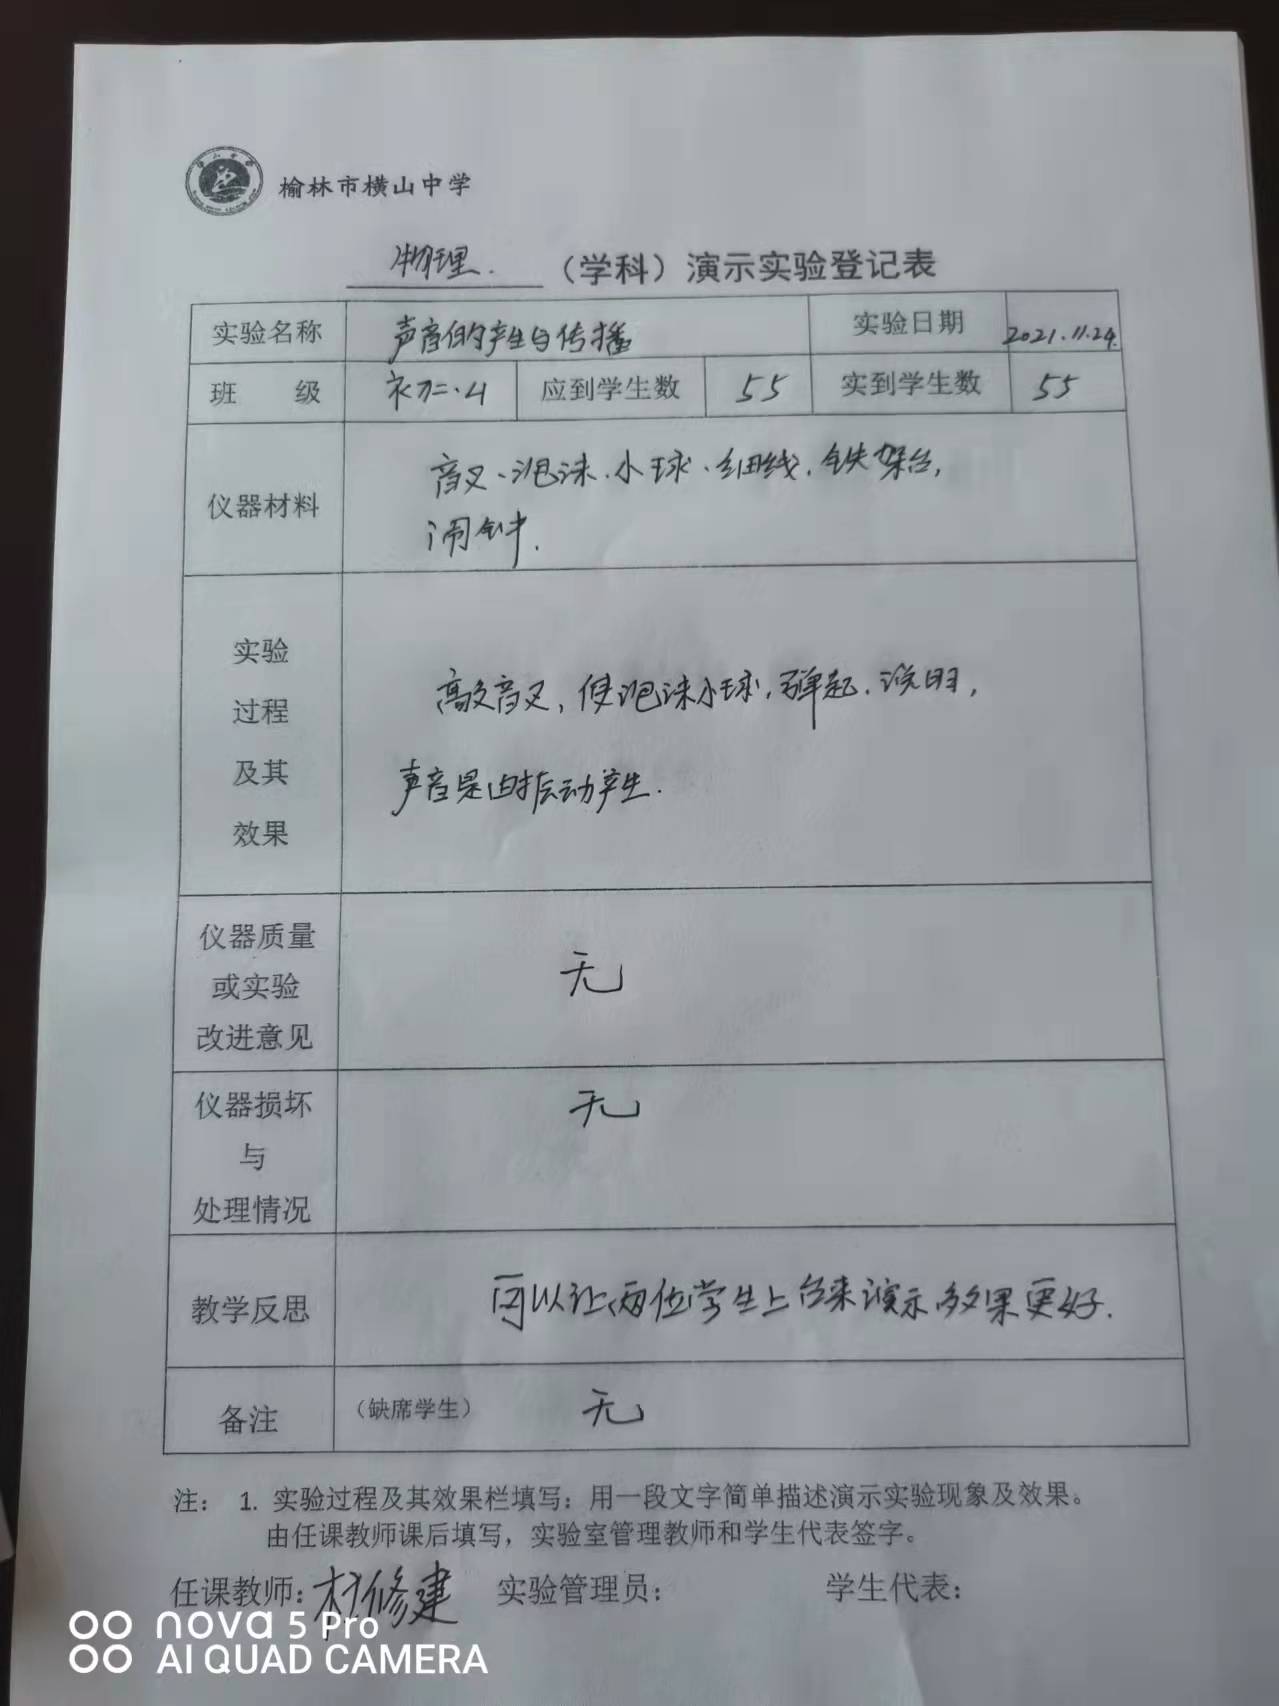 榆林市横山中学
物理.（学科）演示实验登记表
实验名称 声音的产生与传播 实验日期 2021.11.24.
班 级 初二.4 应到学生数 55 实到学生数 55
仪器材料 音叉、泡沫、小球、细线、铁架台,
闹钟.
实验
过程
及其
效果
敲音叉,使泡沫小球,弹起.说明,
声音是由振动产生.
仪器质量
或实验
改进意见
无
仪器损坏
与
处理情况
无
教学反思 可以让两位学生上台来演示效果更好.
备注 （缺席学生） 无
注： 1. 实验过程及其效果栏填写：用一段文字简单描述演示实验现象及效果。
由任课教师课后填写，实验室管理教师和学生代表签字。
任课教师: 修建 实验管理员: 学生代表:
nova 5 Pro
AI QUAD CAMERA